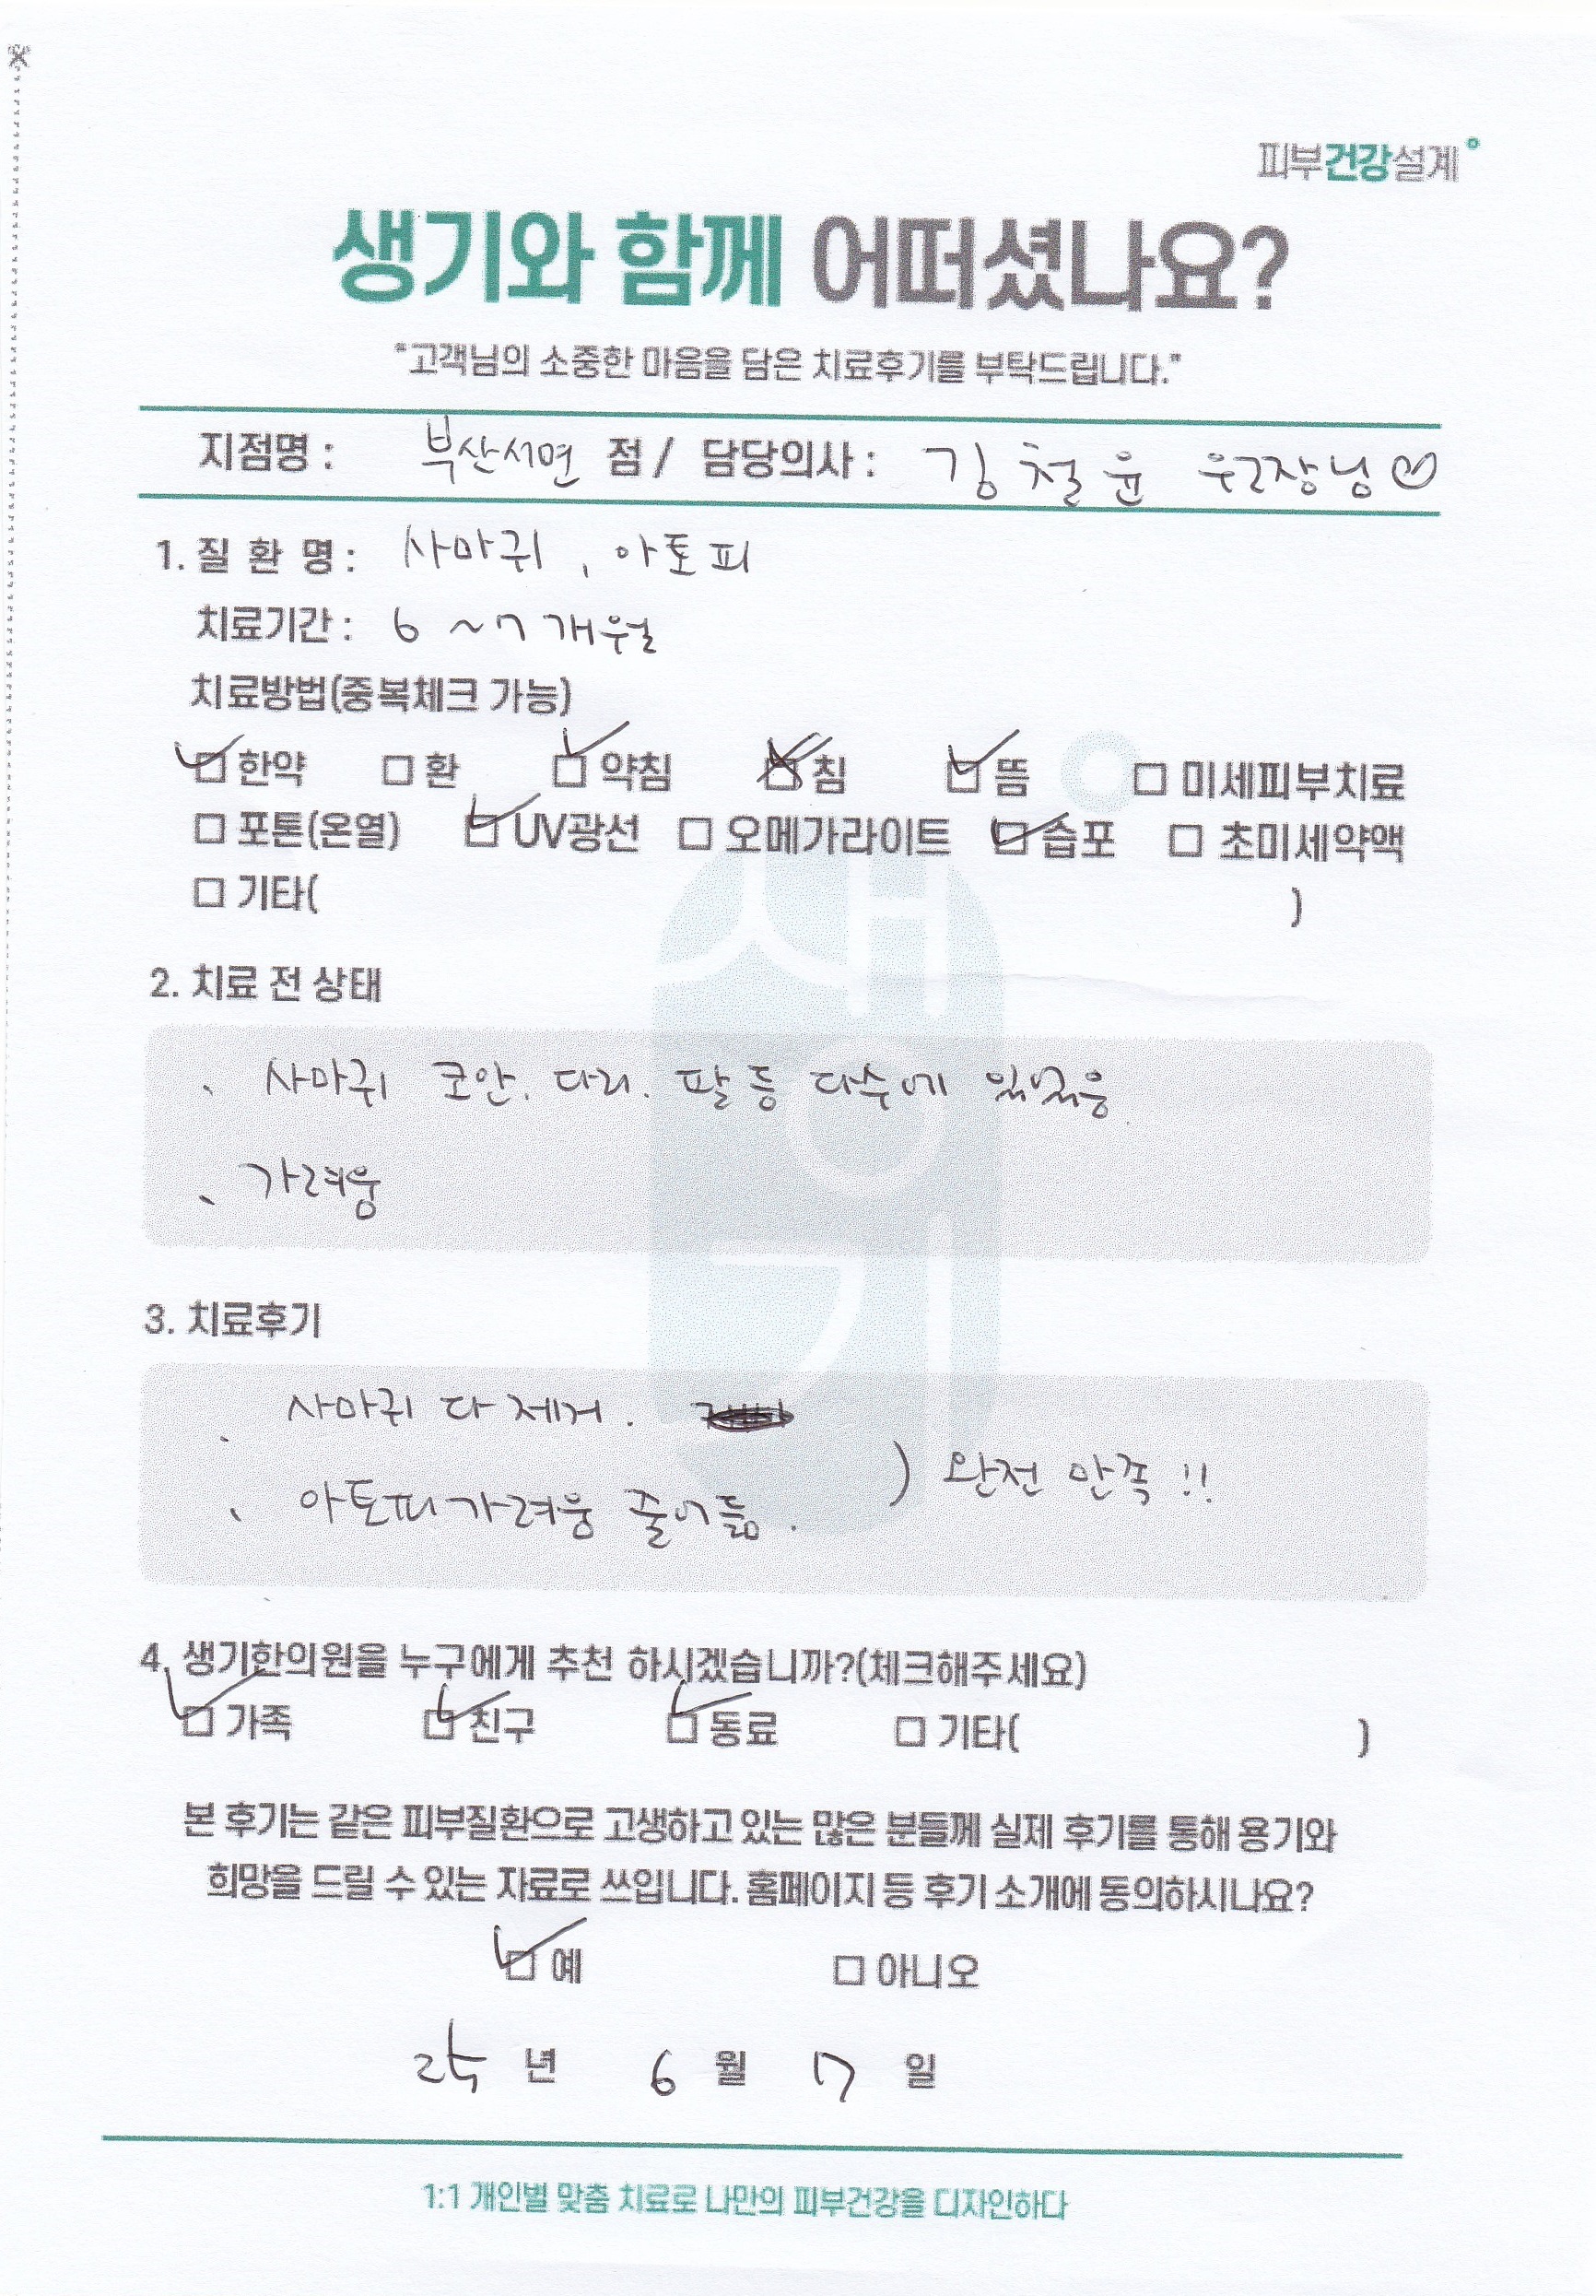 피부건강설계
생기와 함께 어떠셨나요?
"고객님의 소중한 마음을 담은 치료후기를 부탁드립니다."
지점명 : 부산서면 점 / 담당의사 : 김철윤 원장님♡
1. 질 환 명 : 사마귀, 아토피
치료기간 : 6~7개월
치료방법(중복체크 가능)
☑ 한약 □ 환 ☑ 약침 ☑ 침 ☑ 뜸 □ 미세피부치료
□ 포톤(온열) ☑ UV광선 □ 오메가라이트 ☑ 습포 □ 초미세약액
□ 기타( )
2. 치료 전 상태
、 사마귀 코안. 다리. 팔 등 다수에
、 가려움
3. 치료후기
、 사마귀 다 제거.
) 완전 만족!!
、 아토피 가려움 줄어듦.
4. 생기한의원을 누구에게 추천 하시겠습니까?(체크해주세요)
☑ 가족 ☑ 친구 ☑ 동료 □ 기타( )
본 후기는 같은 피부질환으로 고생하고 있는 많은 분들께 실제 후기를 통해 용기와
희망을 드릴 수 있는 자료로 쓰입니다. 홈페이지 등 후기 소개에 동의하시나요?
☑ 예 □ 아니오
25 년 6 월 17 일
1:1 개인별 맞춤 치료로 나만의 피부건강을 디자인하다
생기